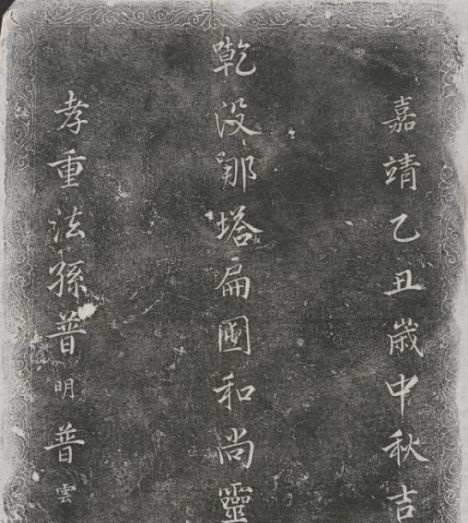 嘉靖乙丑歲中秋吉
乾没哪塔扁囤和尚靈
孝重法孫普明普雲